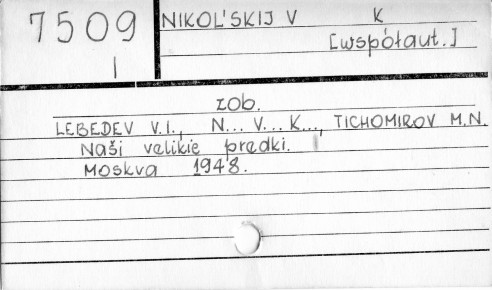 7509
I
NIKOL'SKIJ V K
[współaut.]
zob.
LEBEDEV V.I., N... V... K..., TICHOMIROV M.N.
Naši velikie predki.
Moskva 1948.